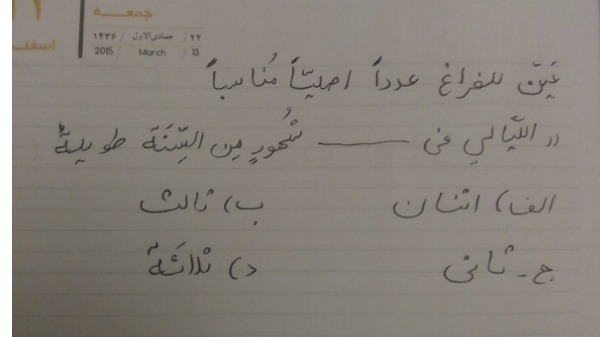 جمعـــه
۱۴۳۶ / جمادی‌الاول / ۲۲
2015 / March / 13
عَيِّن للفراغ عدداً اصليّاً مُناسباً
« اللّيالي فی ـــــــ شُهورٍ مِن السَّنَة طويلةٌ
الف) اثنان ب) ثالث
ج - ثانی د) ثلاثَةٌ